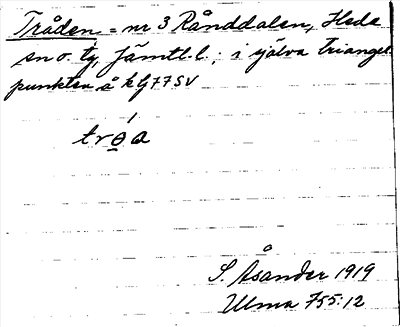 Tråden = nr 3 Rånddalen, Hede
sn o. tg, Jämtl. l.; i själva triangel
punkten å kG77SV
tro̲a
S. Åsander 1919
Ulma 755:12